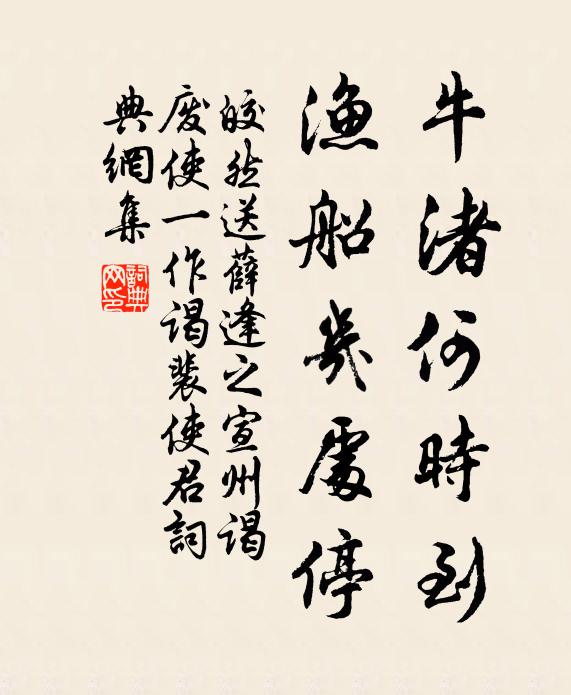 牛渚何時到
漁船幾處停
皎然送薛逢之宣州謁
廢使一作謁裴使君詞
典網集
詞典網印